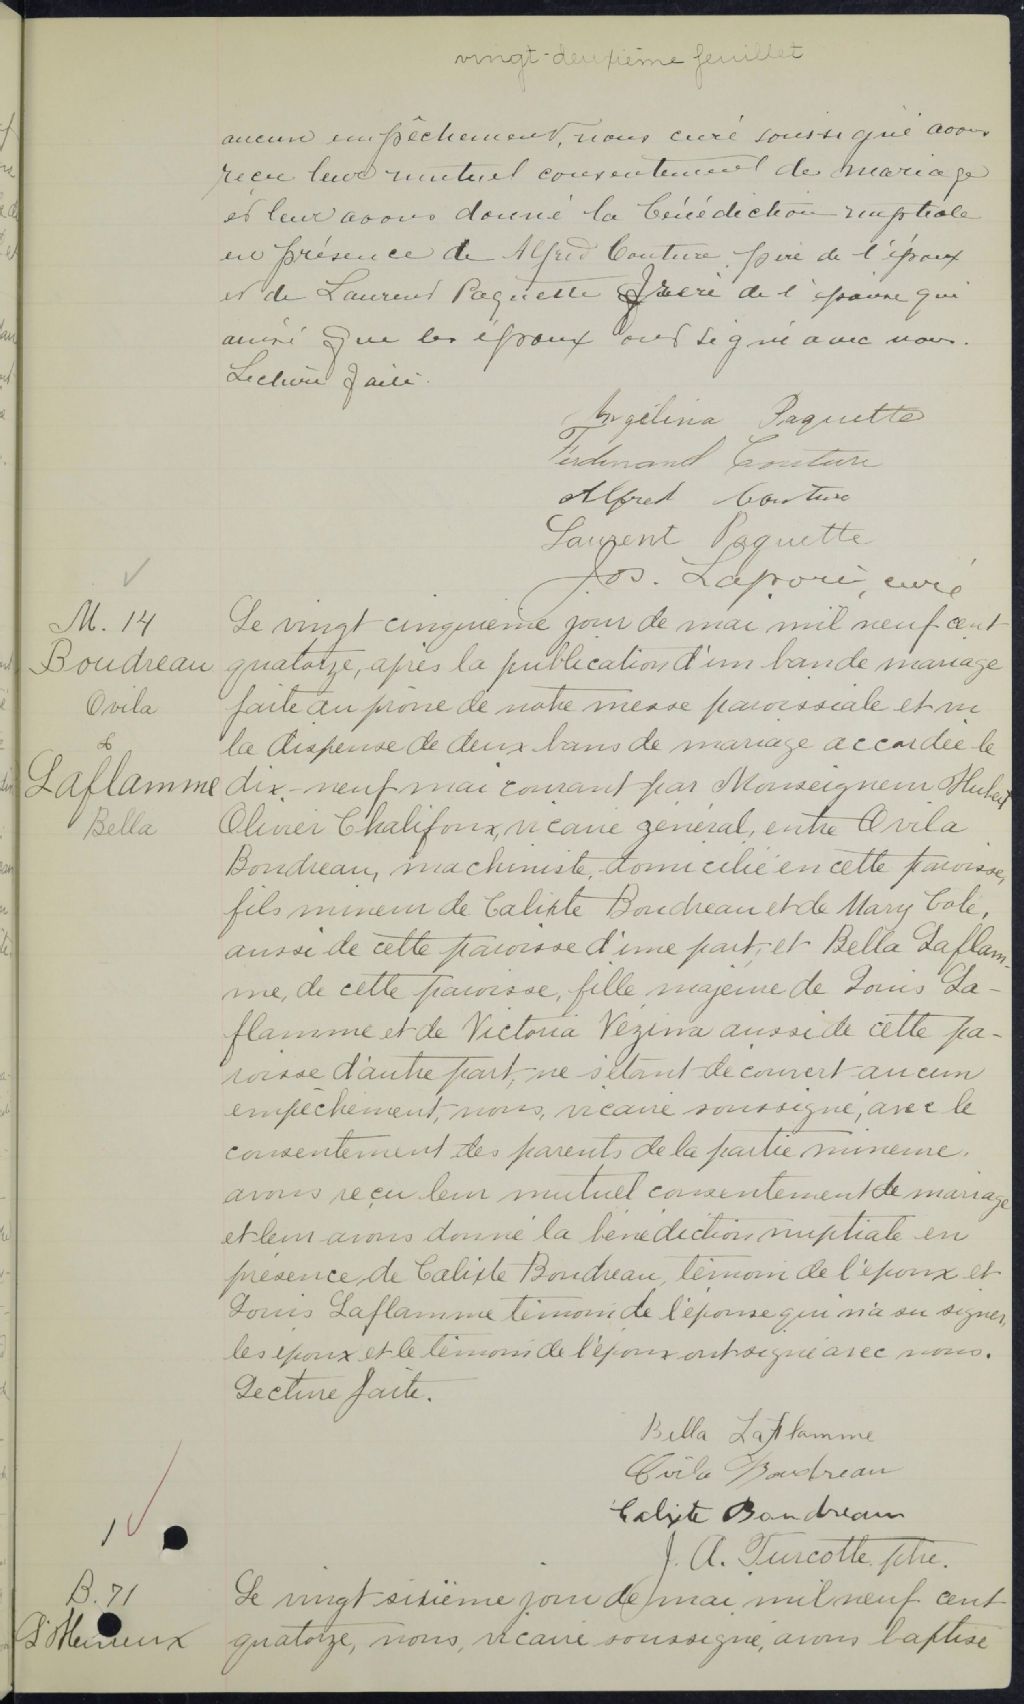 vingt-deuxième feuillet
aucun empêchement, nous curé soussigné avons
reçu leur mutuel consentement de mariage
et leur avons donné la bénédiction nuptiale
en présence de Alfred Couture père de l'époux
et de Laurent Paquette frère de l'épouse qui
ainsi que les époux ont signé avec nous.
Lecture faite.
Angélina Paquette
Ferdinand Couture
Alfred Couture
Laurent Paquette
Jos. Laporte, curé
M. 14
Boudreau
Ovila
&
Laflamme
Bella
Le vingt cinquième jour de mai mil neuf cent
quatorze, après la publication d'un ban de mariage
faite au prône de notre messe paroissiale et vu
la dispense de deux bans de mariage accordée le
dix-neuf mai courant par Monseigneur Hubert
Olivier Chalifoux, vicaire général, entre Ovila
Boudreau, machiniste, domicilié en cette paroisse,
fils mineur de Calixte Boudreau et de Mary Cole,
aussi de cette paroisse d'une part, et Bella Laflam-
me, de cette paroisse, fille majeure de Louis La-
flamme et de Victoria Vézina aussi de cette pa-
roisse d'autre part, ne s'étant découvert aucun
empêchement, nous, vicaire soussigné, avec le
consentement des parents de la partie mineure,
avons reçu leur mutuel consentement de mariage
et leur avons donné la bénédiction nuptiale en
présence de Calixte Boudreau, témoin de l'époux et
Louis Laflamme témoin de l'épouse qui n'a su signer,
les époux et le témoin de l'époux ont signé avec nous.
Lecture faite.
Bella Laflamme
Ovila Boudreau
Calixte Boudreau
J. A. Turcotte ptre.
1
B. 71
L'Heureux
Le vingt sixième jour de mai mil neuf cent
quatorze, nous, vicaire soussigné, avons baptisé